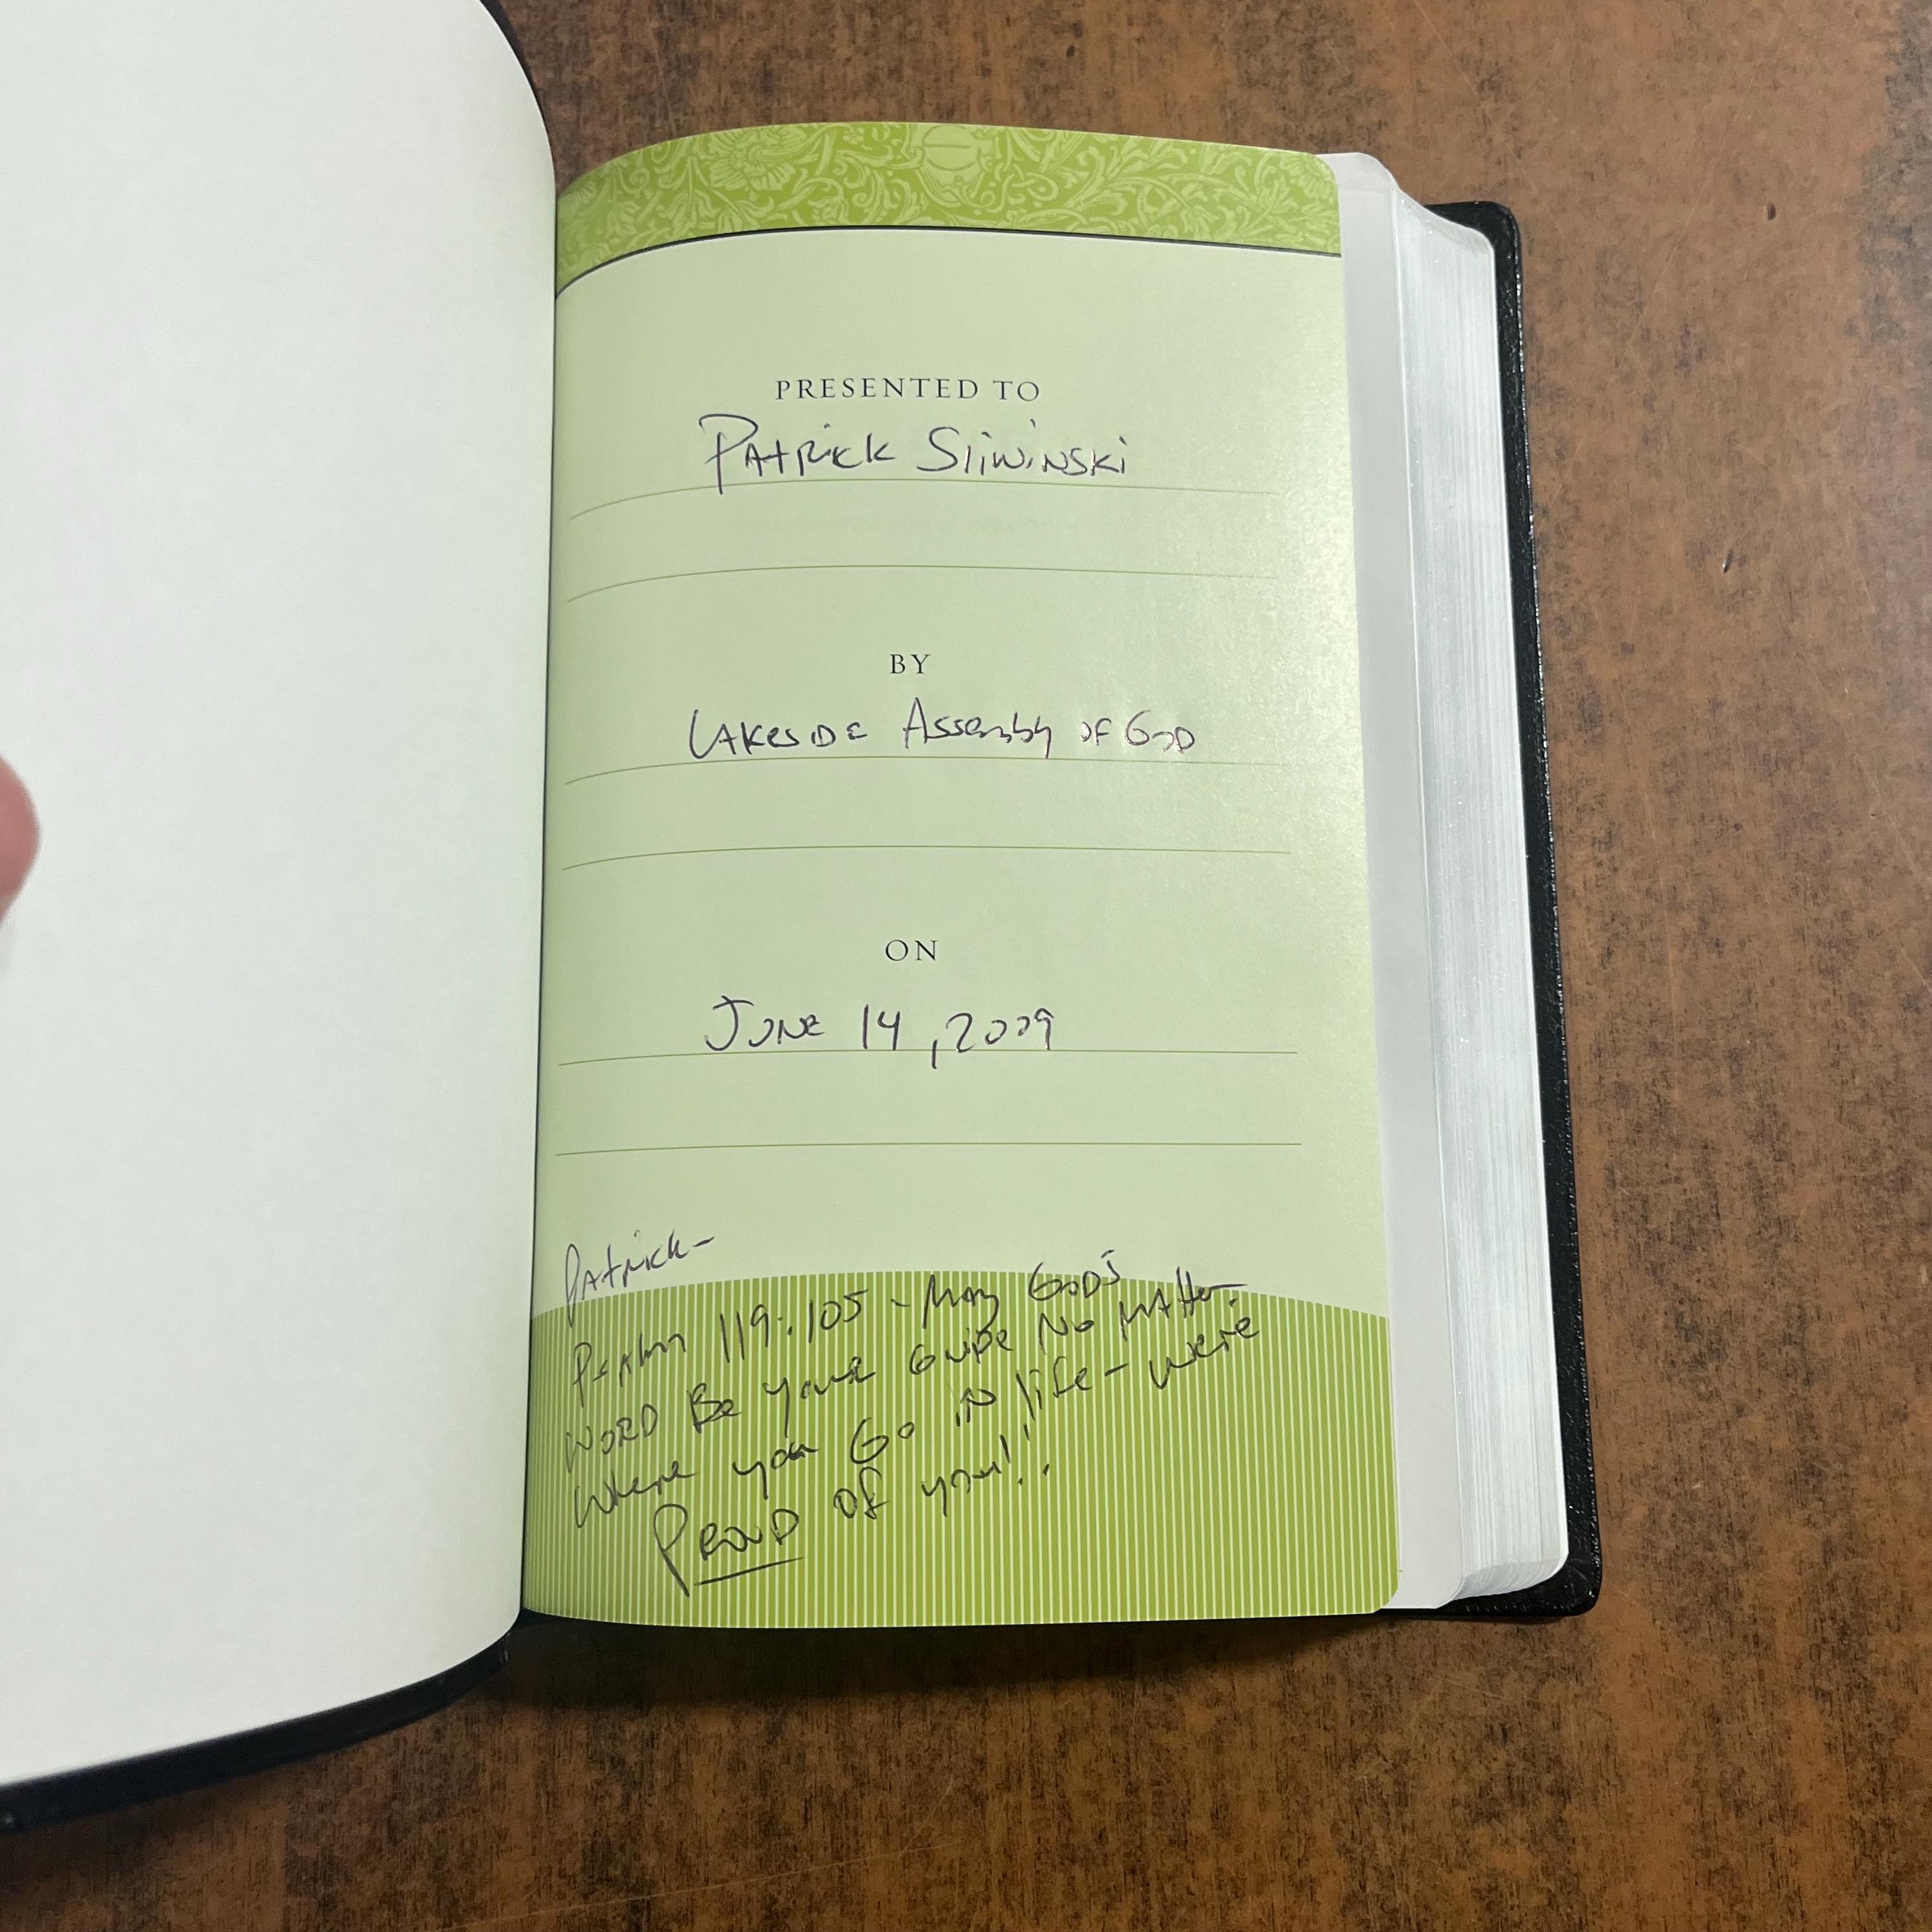 PRESENTED TO
Patrick Sliwinski
BY
Lakeside Assembly of God
ON
June 14, 2009
Patrick-
Psalm 119:105 - May God's
Word Be your Guide No Matter
Where you Go in life - we're
Proud of you!!